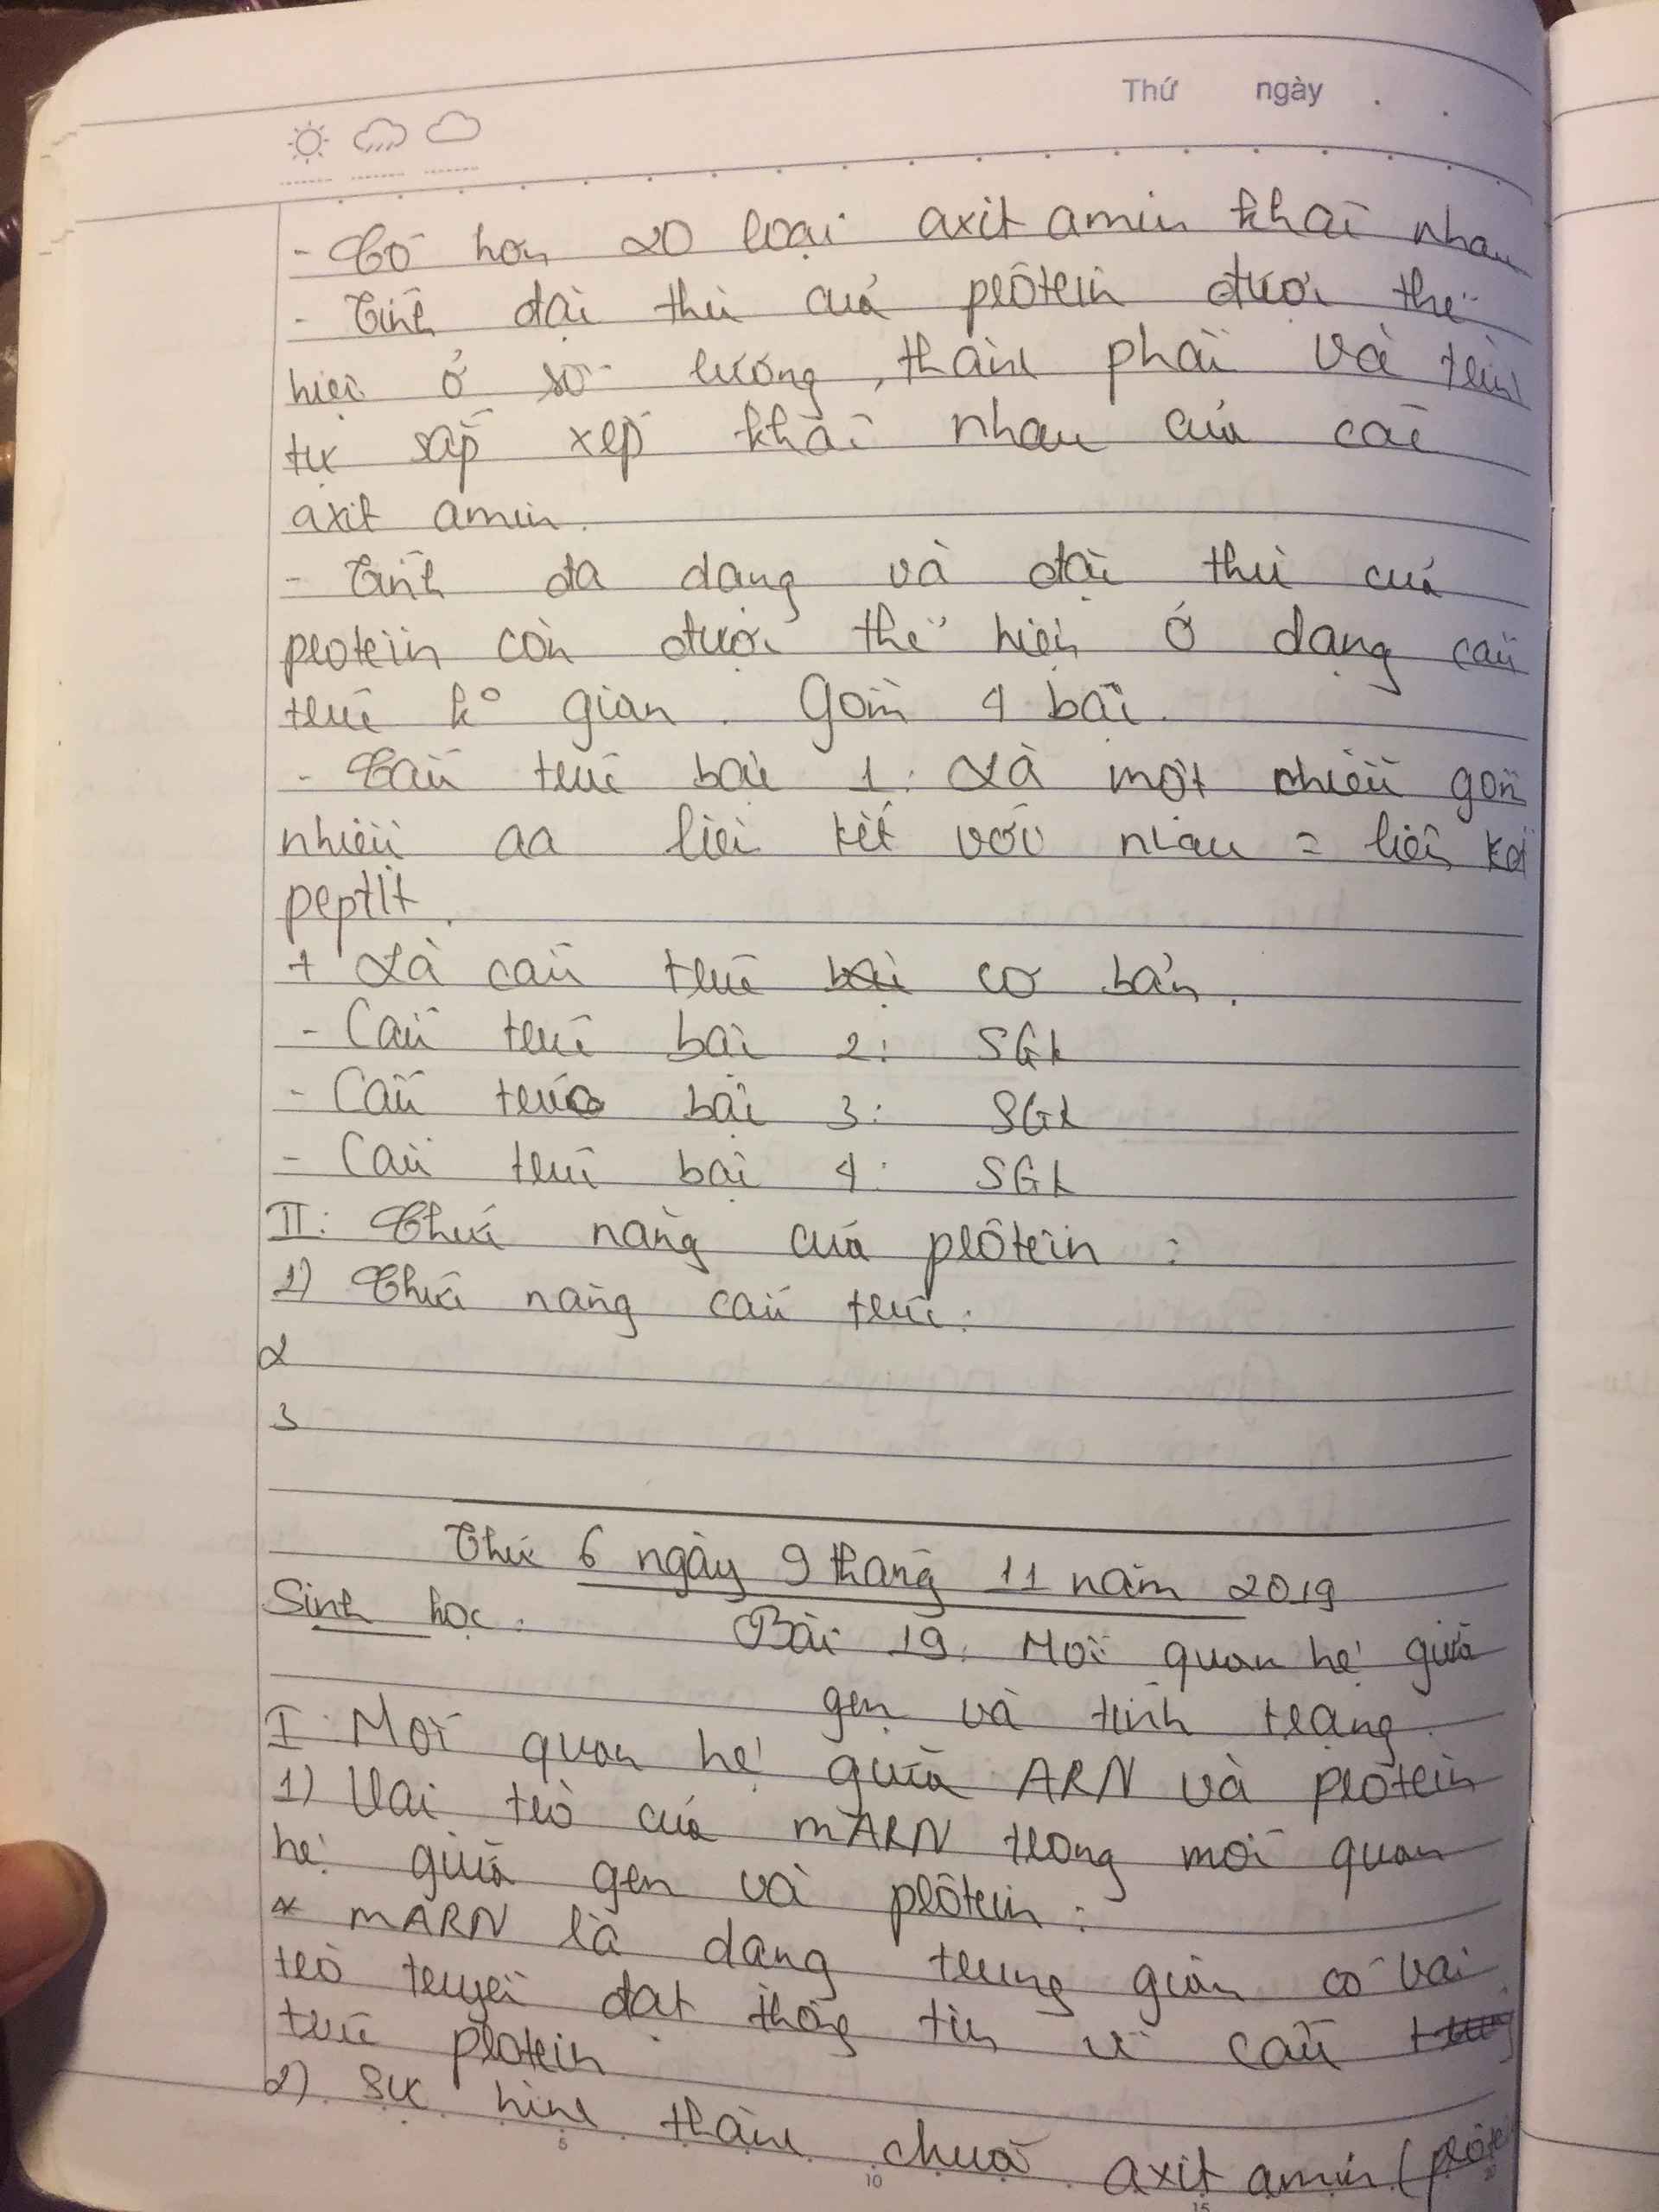 Thứ ngày
- Có hơn 20 loại axit amin khác nhau
- Tính đặc thù của prôtêin được thể
hiện ở số lượng, thành phần và trình
tự sắp xếp khác nhau của các
axit amin.
- Tính đa dạng và đặc thù của
protein còn được thể hiện ở dạng cấu
trúc ko gian. Gồm 4 bậc.
- Cấu trúc bậc 1: Là một chiều gồm
nhiều aa liên kết với nhau = liên kết
peptit.
+ Là cấu trúc cơ bản.
- Cấu trúc bậc 2: SGK
- Cấu trúc bậc 3: SGK
- Cấu trúc bậc 4: SGK
II: Chức năng của prôtêin:
1) Chức năng cấu trúc:
2
3
Thứ 6 ngày 9 tháng 11 năm 2019
Sinh học: Bài 19: Mối quan hệ giữa
gen và tính trạng.
I: Mối quan hệ giữa ARN và prôtêin
1) Vai trò của mARN trong mối quan
hệ giữa gen và prôtêin:
* mARN là dạng trung gian có vai
trò truyền đạt thông tin về cấu
trúc protein
2) Sự hình thành chuỗi axit amin (prôtêin
5 10 15 20